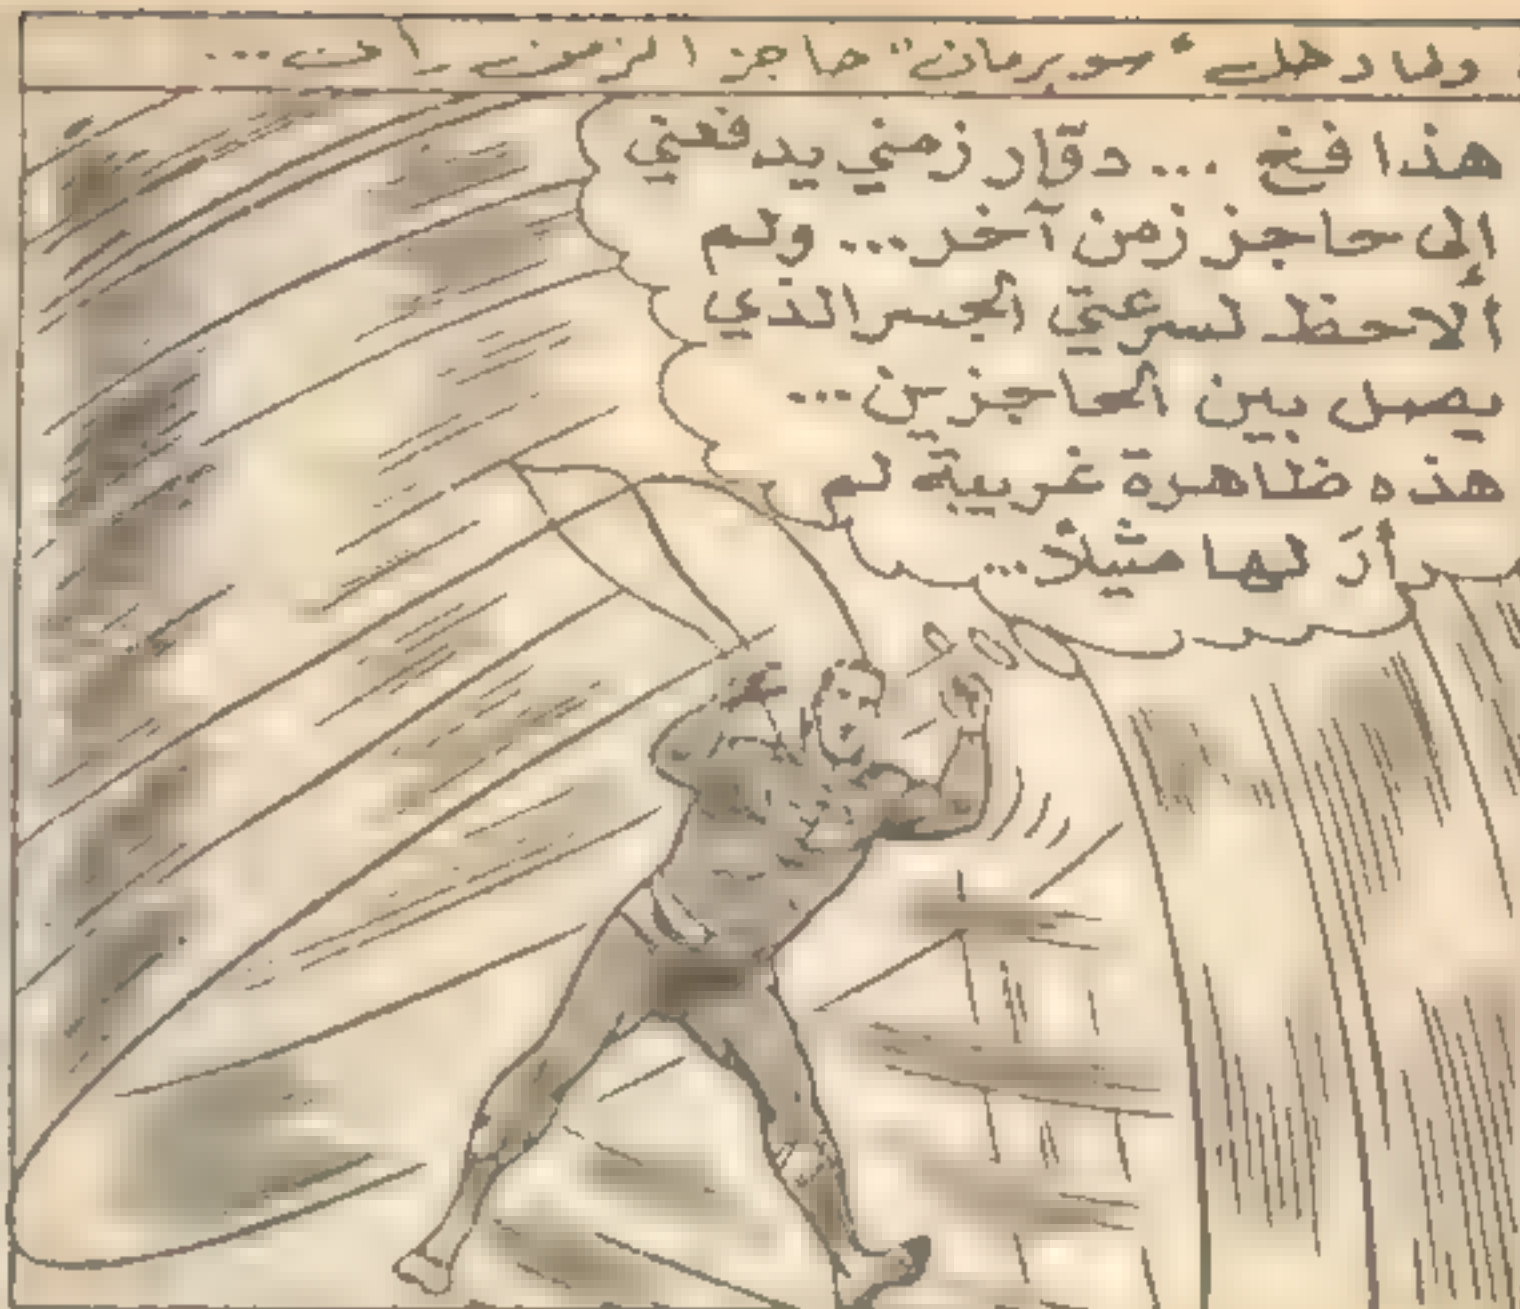 ولما دخل "سوبرمان" حاجز الزمن رأى...
هذا فخ ... دوّار زمني يدفعني
إلى حاجز زمن آخر... ولم
ألاحظ لسرعتي الجسر الذي
يصل بين الحاجزين...
هذه ظاهرة غريبة لم
أرَ لها مثيلاً...